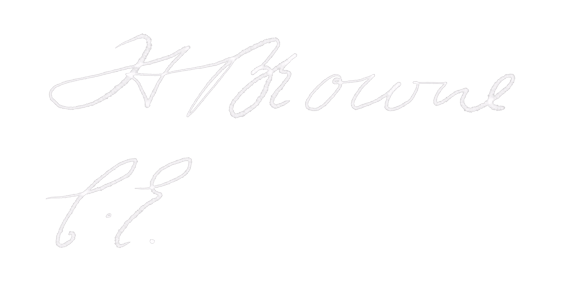 H Browne
C. E.